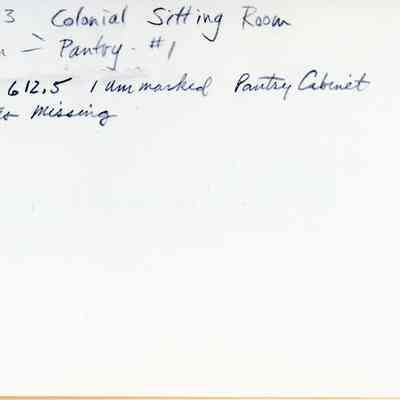 3 Colonial Sitting Room
n — Pantry - #1
612.5 1 Unmarked Pantry Cabinet
Missing